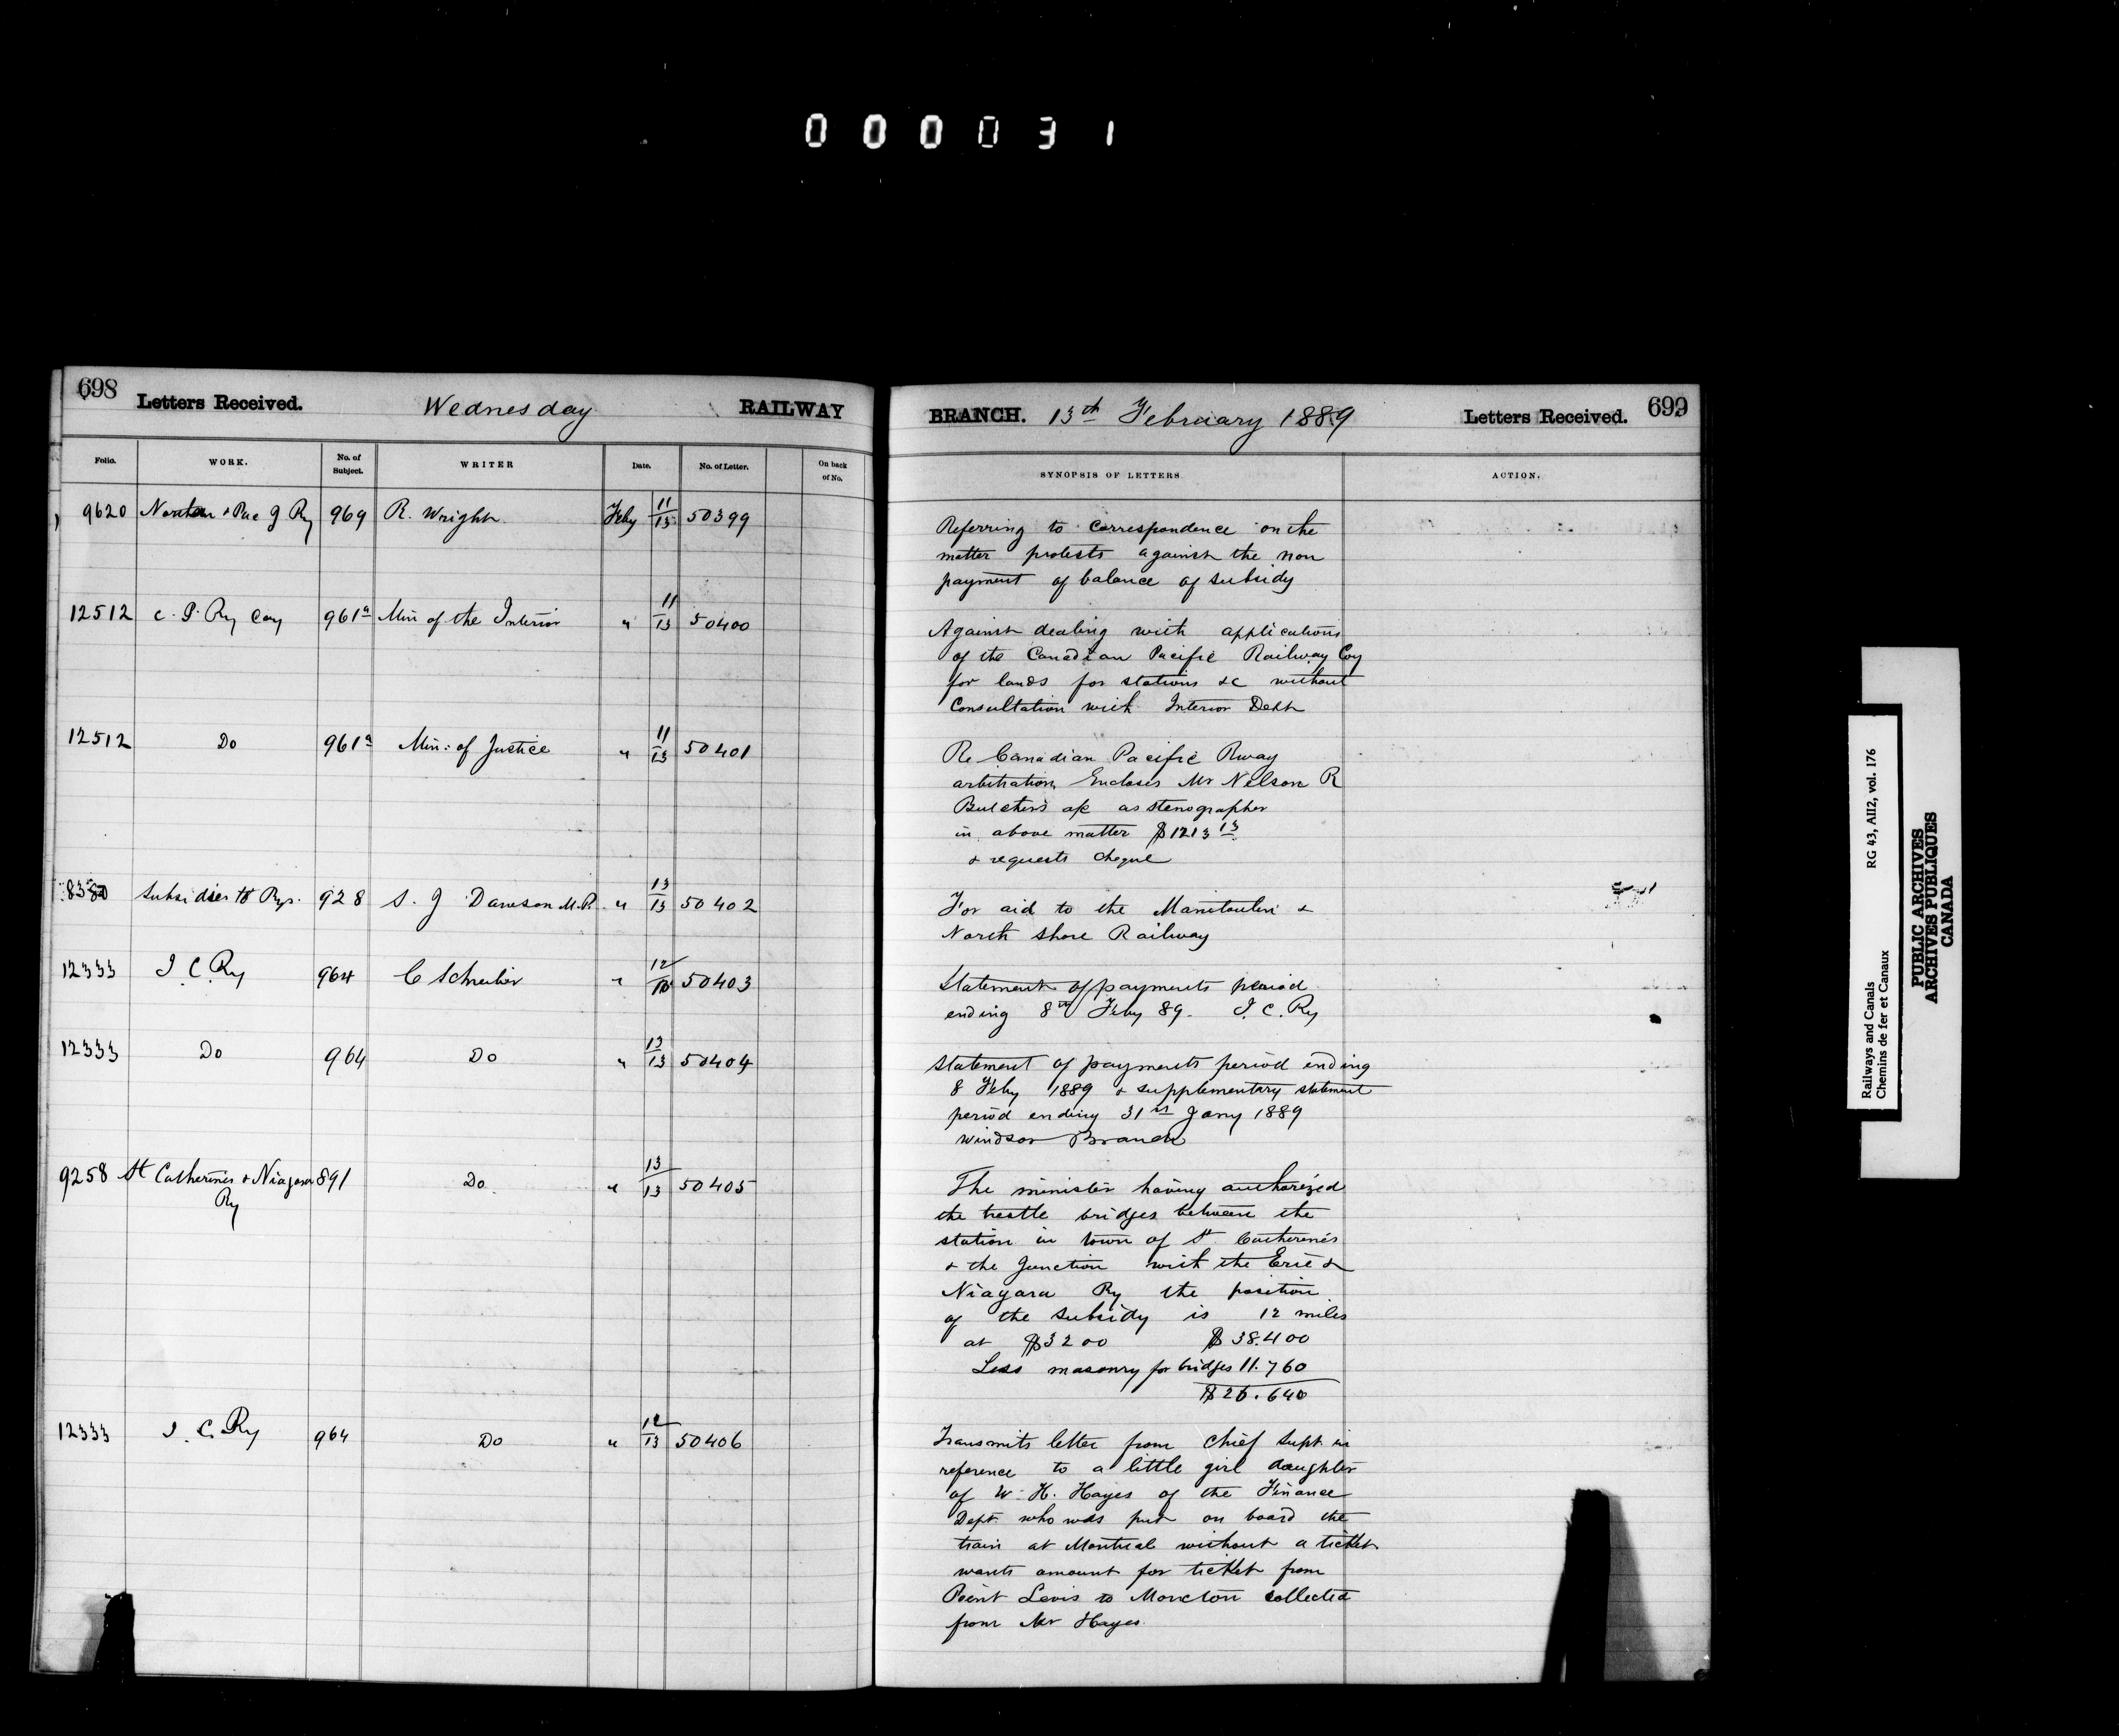 000031
698 Letters Received. Wednesday RAILWAY
Folio. WORK. No. of Subject. WRITER Date. No. of Letter. On back of No.
9620 & Pac J Ry 969 R. Wright Feby 11/13 50399
12512 C. P. Ry Coy 961a Min of the Interior " 11/13 50400
12512 Do 961a Min: of Justice " 11/13 50401
Subsidies to Rys. 928 S. J Dawson M.P. " 13/13 50402
12333 I C Ry 964 C Schreiber " 12/13 50403
12333 Do 964 Do " 13/13 50404
9258 St Catherines & Niagara 891 Do " 13/13 50405
Ry
12333 I. C. Ry 964 Do " 12/13 50406
BRANCH. 13th February 1889 Letters Received. 699
SYNOPSIS OF LETTERS ACTION.
Referring to correspondence on the
matter protests against the non
payment of balance of subsidy
Against dealing with applications
of the Canadian Pacific Railway Coy
for lands for stations &c without
Consultation with Interior Dept
Re Canadian Pacific Rway
arbitration, Encloses Mr Nelson R
Butcher's a/c as stenographer
in above matter $1213 13
& requests cheque
For aid to the Manitoulin &
North Shore Railway
Statement of payments period
ending 8th Feby 89. I. C. Ry
Statement of payments period ending
8 Feby 1889 & supplementary statement
period ending 31st Jany 1889
Windsor Branch
The minister having authorized
the trestle bridges between the
station in town of St Catherines
& the Junction with the Erie &
Niagara Ry the position
of the subsidy is 12 miles
at $3200 $38.400
Less masonry for bridges 11.760
$26.640
Transmits letter from Chief Supt in
reference to a little girl daughter
of W. H. Hayes of the Finance
Dept who was put on board the
train at Montreal without a ticket
wants amount for ticket from
Point Levis to Moncton collected
from Mr Hayes.
Railways and Canals RG 43, AII2, vol. 176
Chemins de fer et Canaux
PUBLIC ARCHIVES
ARCHIVES PUBLIQUES
CANADA